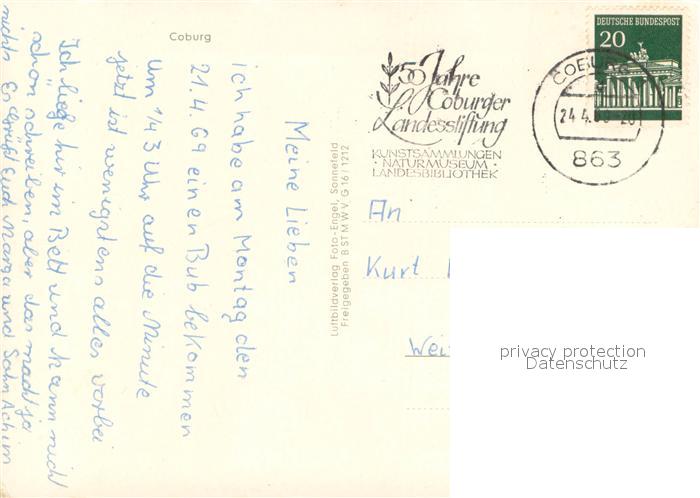 Coburg
50 Jahre
Coburger
Landesstiftung
KUNSTSAMMLUNGEN
· NATURMUSEUM ·
LANDESBIBLIOTHEK
DEUTSCHE BUNDESPOST
20
COBURG
24.4.69-20
863
Meine Lieben
ich habe am Montag den
21.4.69 einen Bub bekommen
um 1/4 3 Uhr auf die Minute
jetzt ist wenigstens alles vorbei
Ich liege hir im Bett und kann nicht
schon schreiben aber das macht ja
nichts Es grüßt Euch Marga und Sohn Achim
Luftbildverlag Foto-Engel, Sonnefeld
Freigegeben B STMWV G 16/1212
An
Kurt
Wei
privacy protection
Datenschutz